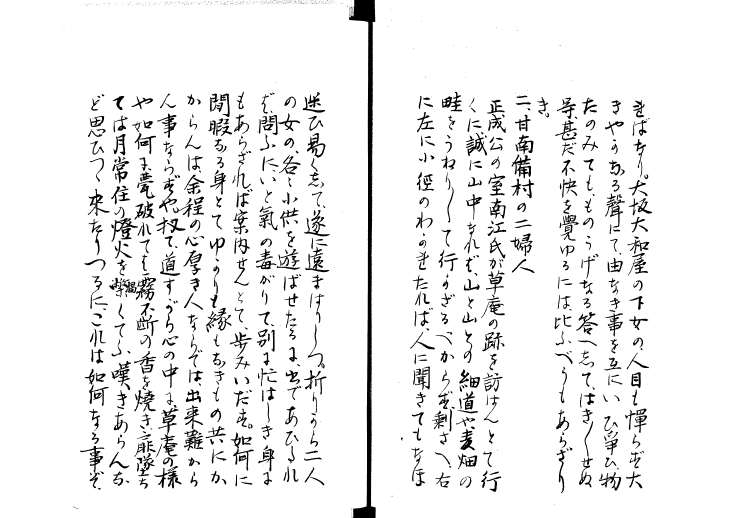 ればなり。大坂大和屋の下女の、人目も憚らず大
きやかなる聲にて、由なき事を互にいひ爭ひ、物
たのみても、ものうげなる答へして、はき〳〵せぬ
等甚だ不快を覺ゆるには、比ふべうもあらざり
き。
二、甘南備村の二婦人
正成公の室南江氏が草庵の跡を訪はんとて行
くに誠に山中なれば、山と山との細道や、麦畑の
畦をうねり〳〵して行かざるべからず、剩さへ、右
に左に小徑のわかれたれば、人に聞きてもなほ
迷ひ易くして、遂に遠まはりしつ。折りから二人
の女の、各〻小供を遊ばせたるに出であひたれ
ば、問ふに、いと氣の毒がりて、別に忙はしき身に
もあらざれば、案内せんとて、歩みいだす。如何に
閒暇ある身とて、ゆかりも縁もなきもの共にか
からんは、余程の心厚き人ならでは、出来難から
ん事ならずや。扨て、道すがら心の中に、草庵の様
や如何に、甍破れても霧不断の香を焼き、扉墜ち
ては月常住の燈火を掲くてふ、嘆きあらんな
ど思ひつゝ、来たりつるに、これは如何なる事ぞ、